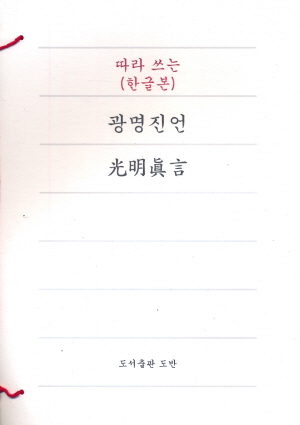 따라 쓰는
(한글본)
광명진언
光明眞言
도서출판 도반